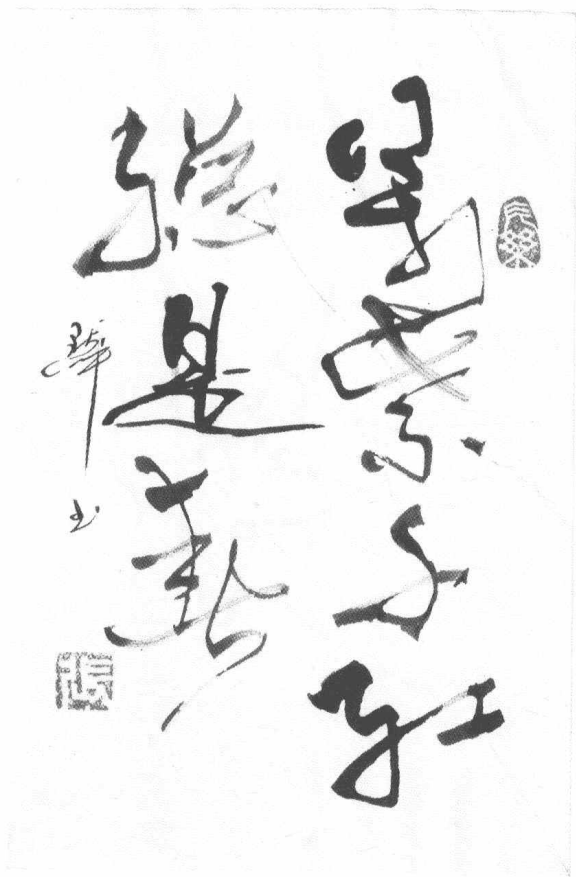 萬紫千紅
總是春
書